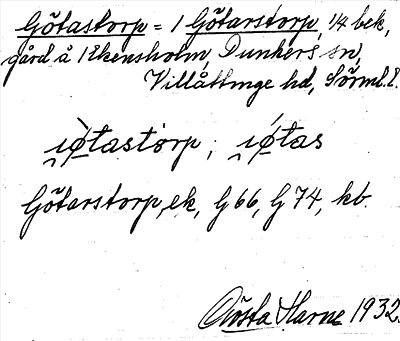 Götastorp = 1 Götarstorp, 1/4 bek,
gård å Ekensholm, Dunkers sn,
Villåttinge hd, Sörml. l.
ı̣ø̀tastòrp; ı̣ǿtas
Götarstorp, ek, G 66, G 74, kb.
Gösta Harne 1932.